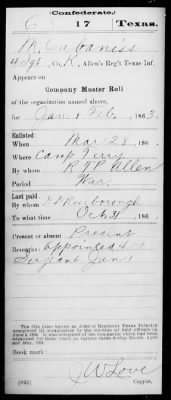 (Confederate.)
C 17 Texas.
M. Cabaniss
4 Sgt, Co. K, Allen's Reg't Texas Inf.
Appears on
Company Muster Roll
of the organization named above,
for Jan & Feb, 1863.
Enlisted:
When Mar 28, 186
Where Camp Terry
By whom R T P Allen
Period War
Last paid:
By whom
To what time Oct 31, 186
Present or absent Present
Remarks: Appointed 4
Sergeant Jan 1
Book mark:
J W Love
(642) Copyist.